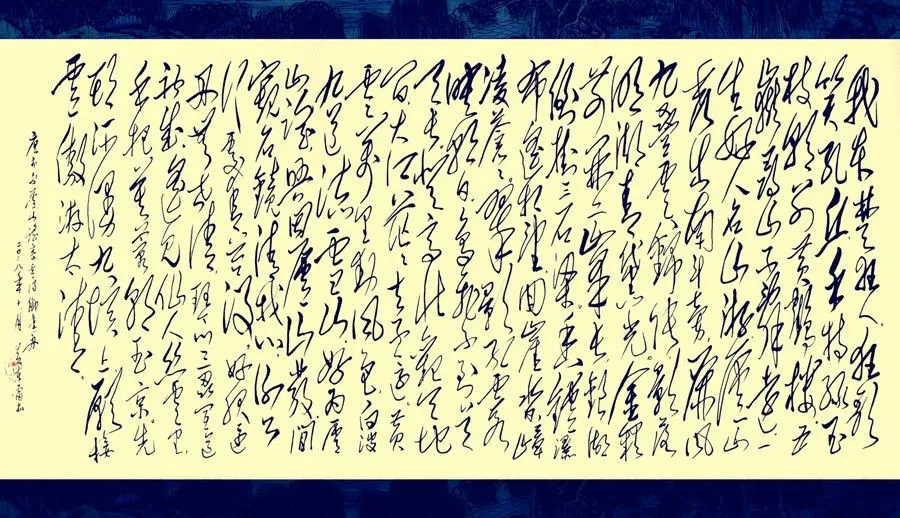 我本楚狂人狂歌
笑孔丘手持绿玉
杖朝别黄鹤楼五
岳寻仙不辞远一
生好入名山游庐山
秀出南斗旁屏风
九叠云锦张影落
明湖青黛光金阙
前开二峰长银河
倒挂三石梁香炉瀑
布遥相望回崖沓嶂
凌苍苍翠影红霞
映朝日鸟飞不到吴
天长登高壮观天地
间大江茫茫去不还黄
云万里动风色白波
九道流雪山好为庐
山谣兴因庐山发闲
窥石镜清我心谢公
行处苍苔没早服还
丹无世情琴心三叠道
初成遥见仙人彩云里
手把芙蓉朝玉京先
期汗漫九垓上愿接
卢敖游太清
唐李白庐山谣寄卢侍御虚舟
二〇一八年十月 书